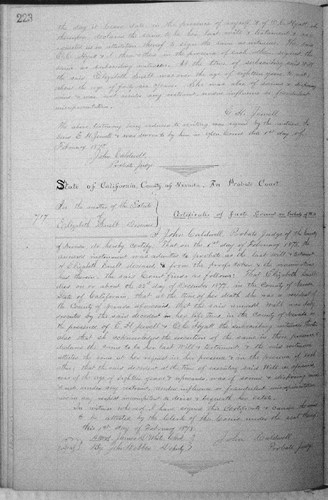 223
the day it bears date in the presence of myself & of C. C. Hyat &
thereby declared the same to be her last will & testament &
requested us as witnesses thereof to sign the same as witnesses. That
C. C. Hyat & I then in the presence of each other signed the
same as subscribing witnesses. At the time of subscribing said Will
the said Elizabeth was over the age of eighteen years, to wit,
about the age of years. She was also of sound & disposing
mind & was not under any restraint, undue influence or fraudulent
misrepresentation.
E. H. Jewell
The above testimony being reduced to writing was signed by the witness
E. H. Jewell & was sworn to by him in open Court this 1st day of
February 1878.
John Caldwell,
Probate Judge
State of California, County of Nevada, In Probate Court.
In the matter of the Estate
717 of
Elizabeth Deceased
Certificate of Proof
I John Caldwell, Probate Judge of the County
of Nevada do hereby certify, That on the 1st day of February 1878, the
annexed instrument was admitted to probate as the last will & testament
of Elizabeth deceased & from the proofs taken & the examination
had therein, the said Court finds as follows: That Elizabeth
died on or about the 12th day of December 1877, in the County of Nevada
State of California, that at the time of her death she was a resident of
the County of Nevada aforesaid, that the said annexed will was duly
executed by the said deceased in her life time, in the County of Nevada in
the presence of E. H. Jewell & C. C. Hyat the subscribing witnesses thereto
also that she acknowledged the execution of the same in their presence &
declared the same to be her last Will & testament & the said witnesses
attested the same at her request in her presence & in the presence of each
other; that the said deceased at the time of executing said Will as aforesaid
was of the age of eighteen years & upwards was of sound & disposing mind
& not under any restraint, undue influence or fraudulent misrepresentation
nor in any respect incompetent to devise & bequeath her estate.
In witness whereof, I have signed this Certificate & caused the same
to be attested by the Clerk of this Court under the seal thereof
this 1st day of February 1878
Attest James D. White Clerk John Caldwell
By John Webber Deputy Probate Judge